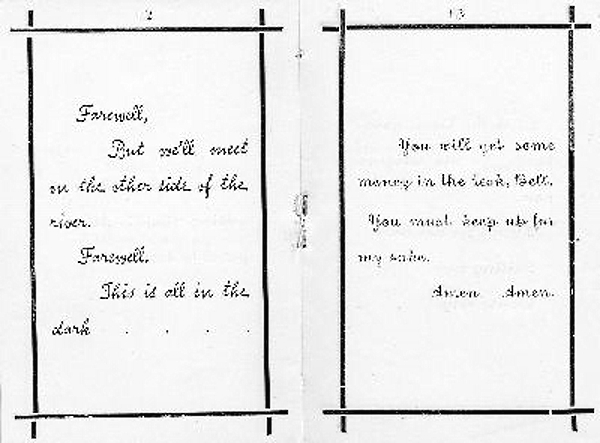 12
Farewell,
But we'll meet
on the other side of the
river.
Farewell.
This is all in the
dark . . . .
13
You will get some
money in the book, Bell.
You must keep up for
my sake.
Amen Amen.